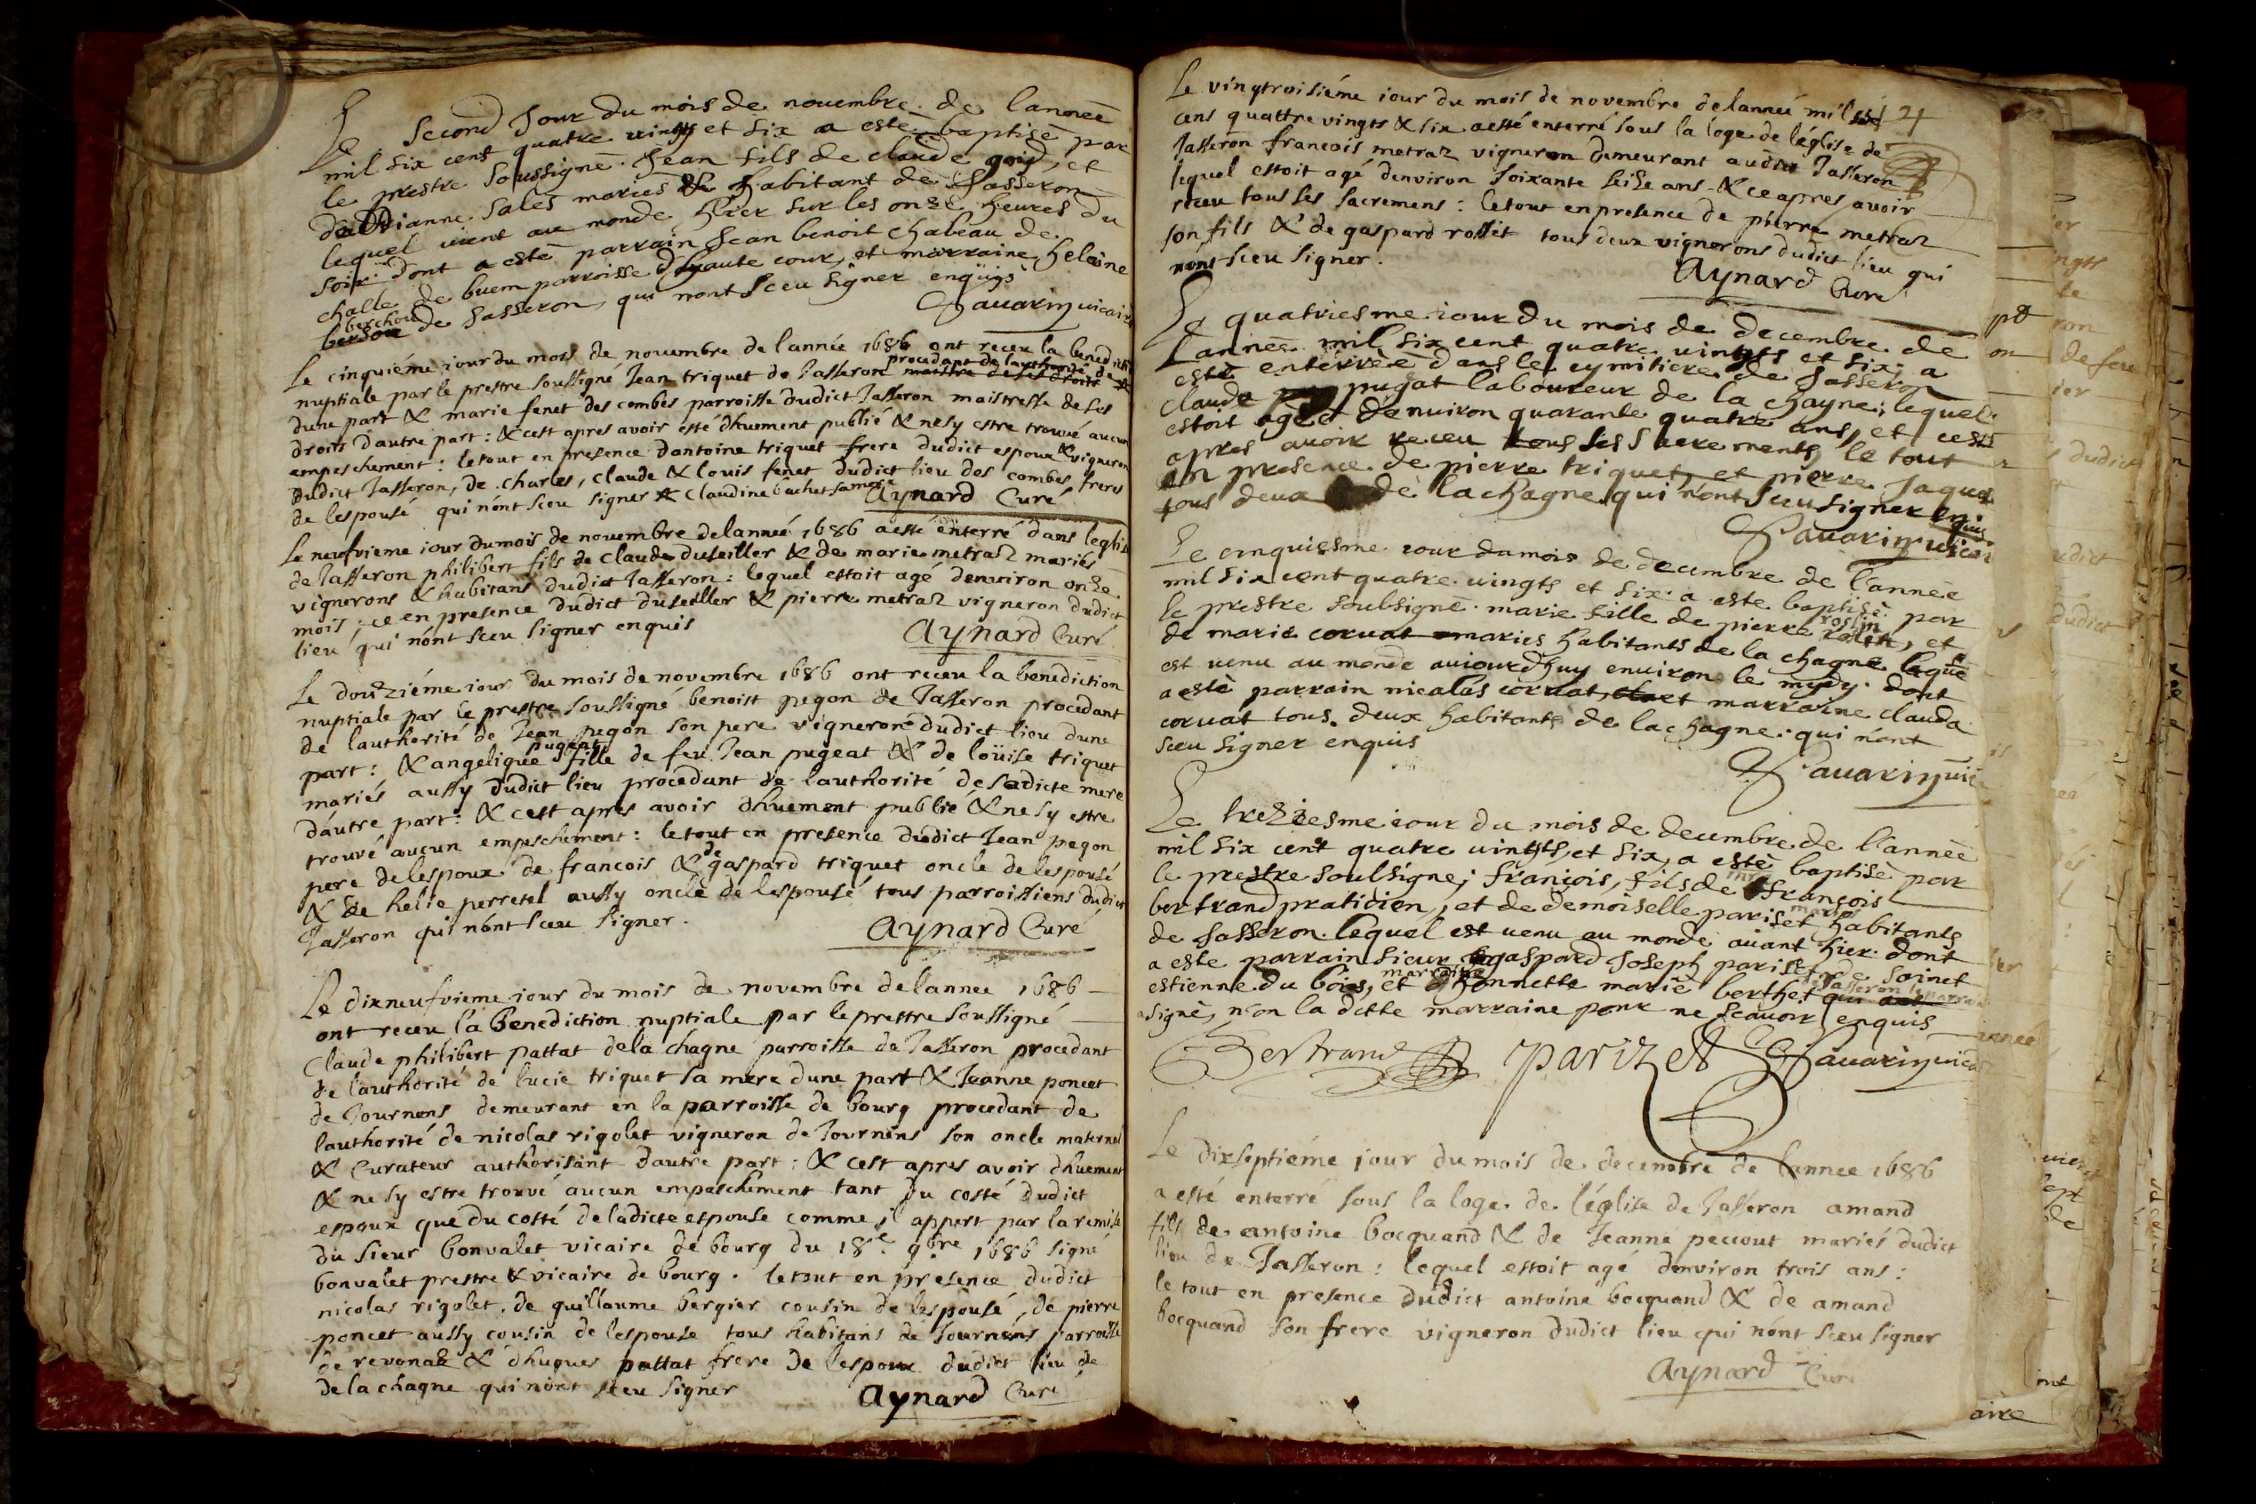 Le second Jour du mois de nouembre de lannee
mil six cent quatre vingts et six a esté baptisé par
le prestre soussigné Jean fils de claude goyd, et
dianne sales mariés habitant de Jasseron
lequel vient au monde hier sur les onze heures du
soir dont a esté parrain Jean benoit chabeau de
challe de buem parroisse d'haute cour, et marraine helaine
berchou
de Jasseron, qui nont sceu signer enquis
Sauarin vicaire
Le cinquiéme iour du mois de nouembre de l'année 1686 ont receu la bened
procedant de lauthorité de
nuptiale par le prestre soussigné Jean triquet de Jasseron maistre de ses droits
dune part & marie fenet des combes parroisse dudict Jasseron maistresse de ses
droits dautre part : & cest apres avoir esté dhuement publié & nesy estre trouvé aucun
empeschement : le tout en presence dantoine triquet frere dudict espoux & vigneron
dudict Jasseron, de charles, claude & louis fenet dudict lieu des combes freres
de lespousé qui nónt sceu signer & claudine bachet sa mere
Aynard Curé
Le neufvieme iour du mois de novembre de lanneé 1686 a esté enterré dans leglise
de Jasseron philibert fils de claude duseiller & de marie metraz mariés
vignerons & habitans dudict Jasseron : lequel estoit agé denviron onze
mois ; ce en presence dudict duseiller & pierre metraz vigneron dudict
lieu qui nónt sceu signer enquis
Aynard Curé
Le douziéme iour du mois de novembre 1686 ont receu la benediction
nuptiale par le prestre soussigné benoist pegon de Jasseron procedant
de lauthorité de Jean pegon son pere vigneron dudict lieu dune
pugeat
part : & angelique fille de feu Jean pugeat & de loüise triquet
mariés aussy dudict lieu procedant de lauthorité de sadicte mere
dáutre part : & cest apres avoir dhuement publié & nesy estre
trouvé aucun empeschement : le tout en presence dudict Jean pegon
pere de lespoux de francois & de gaspard triquet oncle de lespousé
& de helie perretel aussy oncle de lespousé tous parroissiens dudict
Jasseron qui nónt sceu signer.
Aynard Curé
Le dixneufvieme iour du mois de novembre de lannee 1686
ont receu la benediction nuptiale par le prestre soussigné
Claude philibert pattat dela chagne parroisse de Jasseron procedant
de lauthorité de lucie triquet sa mere dune part & Jeanne poncet
de Journens demeurant en la parroisse de bourg procedant de
lauthorité de nicolas rigolet vigneron de Journens son oncle maternel
& Curateur authorisant dautre part : & cest apres avoir dhuement
& nesy estre trouvé aucun empeschement tant du costé dudict
espoux que du costé de ladicte espouse comme il appert par la remise
du sieur bonvalet vicaire de bourg du 18e 9bre 1686 signé
bonvalet prestre & vicaire de bourg. le tout en presence dudict
nicolas rigolet, de guillaume bergier cousin de lespousé, de pierre
poncet aussy cousin de lespouse tous habitans de Journens parroisse
de revonaz & dhugues pattat frere de lespoux dudict lieu de
de la chagne qui nónt sceu signer
Aynard Curé
Le vingtroisiéme iour du mois de novembre de lanneé mil six
21
cens quattre vingts & six a esté enterré sous la loge de léglise de
Jasseron francois metraz vigneron demeurant audict Jasseron
lequel estoit agé denviron soixante seize ans & ce apres avoir
receu tous ses sacremens : le tout en presence de pierre metraz
son fils & de gaspard rosset tous deux vignerons dudict lieu qui
nont sceu signer.
Aynard Curé
Le quatriesme iour du mois de decembre de
lannee mil six cent quatre vingts et six a
esté enterreé dans le cymitiere de Jasseron
claude pugat laboureur de la chagne ; lequel
estoit agé d'enuiron quarante quatre ans, et cest
apres auoir receu tous ses Sacrements, le tout
en presence de pierre triquet, et pierre Jaquet
tous deux de la chagne qui n'ont sceu signer enquis
Sauarin vicai
Le cinquiesme iour du mois de decembre de l'anneé
mil six cent quatre vingts et six a esté baptisé par
le prestre soubsigné marie fille de pierre roslin, et
de marie coruat mariés habitants de la chagne laque
est venu au monde auiourdhuy enuiron le mydy dont
a esté parrain nicolas coruat, et marraine clauda
coruat tous deux habitants de la chagne qui n'ont
sceu signer enquis
Sauarin vic
Le treziesme iour du mois de decembre de l'anneé
mil six cent quatre vingts, et six, a esté baptisé par
le prestre soulsigné ; françois, fils de françois
bertrand praticien, et de demoiselle pariset habitants
mariés
de Jasseron lequel est venu au monde auant hier dont
a esté parrain sieur gaspard Joseph pariset de soinct
estienne du bois, et marraine honnette marie berthet
de Jasseron le parrain
a signé, non la ditte marraine pour ne scauoir enquis
Bertrand parizet Sauarin vica
Le dixseptiéme jour du mois de decembre de lannee 1686
a esté enterré sous la loge de léglise de Jasseron amand
fils de antoine bocquand & de Jeanne peccout mariés dudict
lieu de Jasseron : lequel estoit agé denviron trois ans :
le tout en presence dudict antoine bocquand & de amand
bocquand son frere vigneron dudict lieu qui nónt sceu signer
Aynard Curé